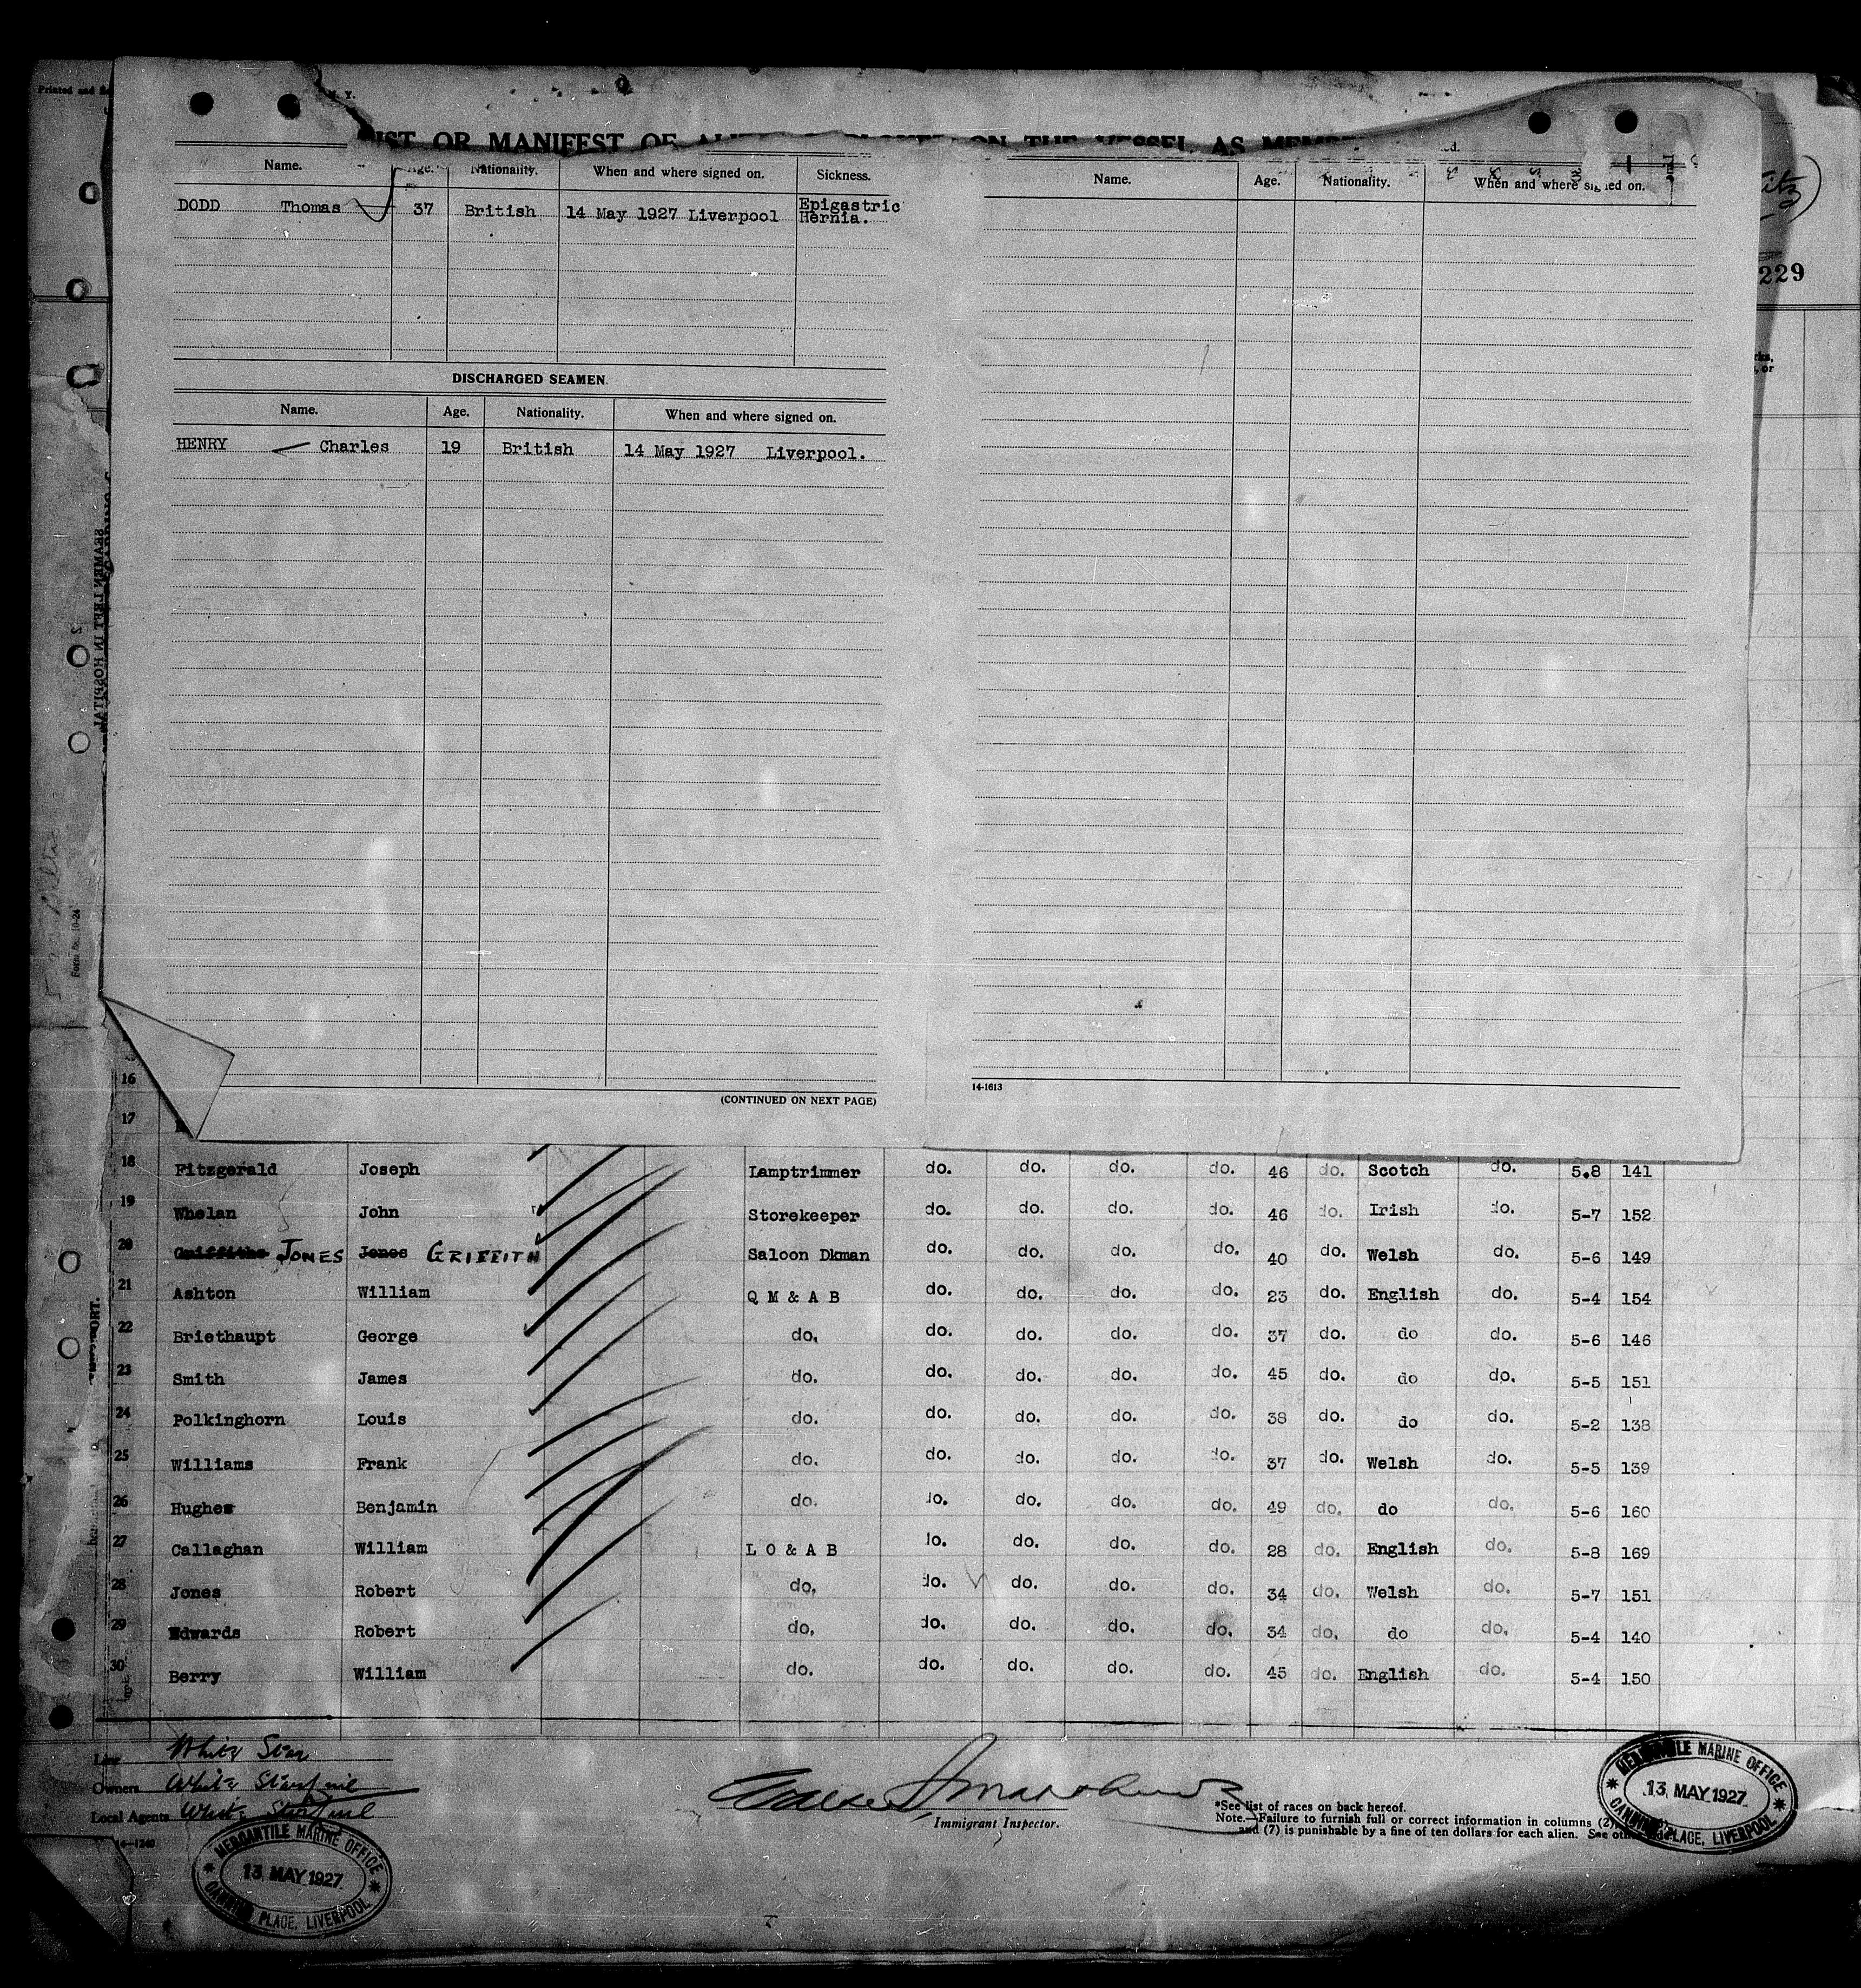 Printed and
N. Y.
LIST OR MANIFEST OF ON THE VESSEL AS
Name. Age. Nationality. When and where signed on. Sickness.
DODD Thomas 37 British 14 May 1927 Liverpool Epigastric Hernia.
DISCHARGED SEAMEN.
Name. Age. Nationality. When and where signed on.
HENRY Charles 19 British 14 May 1927 Liverpool.
(CONTINUED ON NEXT PAGE)
Name. Age. Nationality. When and where signed on.
14-1613
229
SEAMEN LEFT IN HOSPITAL
16
17
18 Fitzgerald Joseph Lamptrimmer do. do. do. do. 46 do. Scotch do. 5.8 141
19 Whelan John Storekeeper do. do. do. do. 46 do. Irish do. 5-7 152
20 Griffiths JONES Jones GRIFFITH Saloon Dkman do. do. do. do. 40 do. Welsh do. 5-6 149
21 Ashton William Q M & A B do. do. do. do. 23 do. English do. 5-4 154
22 Briethaupt George do. do. do. do. do. 37 do. do do. 5-6 146
23 Smith James do. do. do. do. do. 45 do. do do. 5-5 151
24 Polkinghorn Louis do. do. do. do. do. 38 do. do do. 5-2 138
25 Williams Frank do. do. do. do. do. 37 do. Welsh do. 5-5 139
26 Hughes Benjamin do. do. do. do. do. 49 do. do do. 5-6 160
27 Callaghan William L O & A B do. do. do. do. 28 do. English do. 5-8 169
28 Jones Robert do. do. do. do. do. 34 do. Welsh do. 5-7 151
29 Edwards Robert do. do. do. do. do. 34 do. do do. 5-4 140
30 Berry William do. do. do. do. do. 45 do. English do. 5-4 150
Line White Star
Owners White Star Line
Local Agents White Star Line
14-1240
Immigrant Inspector.
*See list of races on back hereof.
Note.—Failure to furnish full or correct information in columns (2),
and (7) is punishable by a fine of ten dollars for each alien. See other side.
MERCANTILE MARINE OFFICE
13 MAY 1927
CANNING PLACE, LIVERPOOL
MERCANTILE MARINE OFFICE
13 MAY 1927
CANNING PLACE, LIVERPOOL